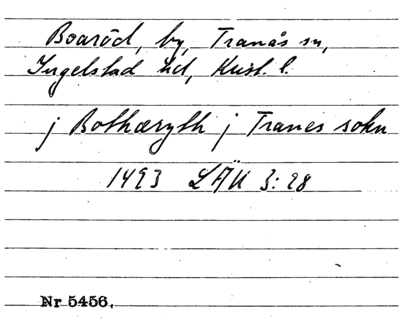 Boaröd, by, Tranås sn,
Ingelstad hd, Krist. l.
j Bothærydh j Tranes sokn
1493 LÄU 3:28
Nr 5456.